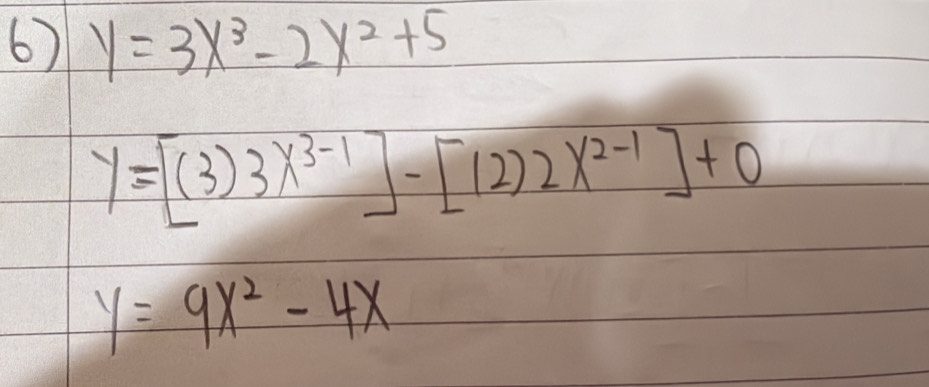 6) y = 3x³ - 2x² + 5
y = [(3)3x³⁻¹] - [(2)2x²⁻¹] + 0
y = 9x² - 4x